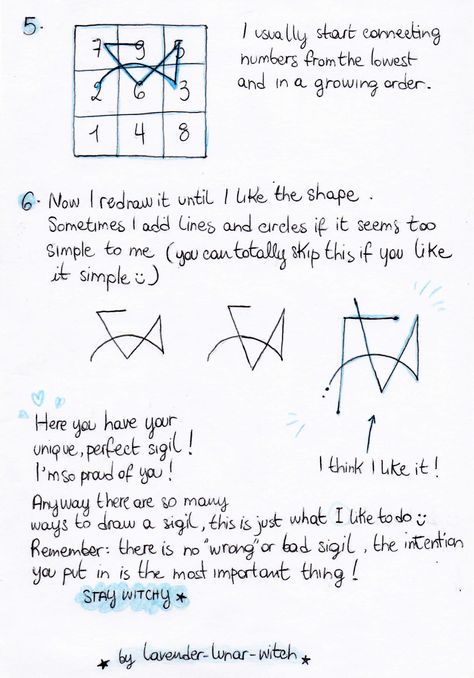 5.
7 9 5
2 6 3
1 4 8
I usually start connecting
numbers from the lowest
and in a growing order.
6. Now I redraw it until I like the shape.
Sometimes I add lines and circles if it seems too
simple to me (you can totally skip this if you like
it simple :))
Here you have your
unique, perfect sigil!
I'm so proud of you!
I think I like it!
Anyway there are so many
ways to draw a sigil, this is just what I like to do :)
Remember: there is no "wrong" or bad sigil, the intention
you put in is the most important thing!
STAY WITCHY ★
★ by lavender-lunar-witch ★